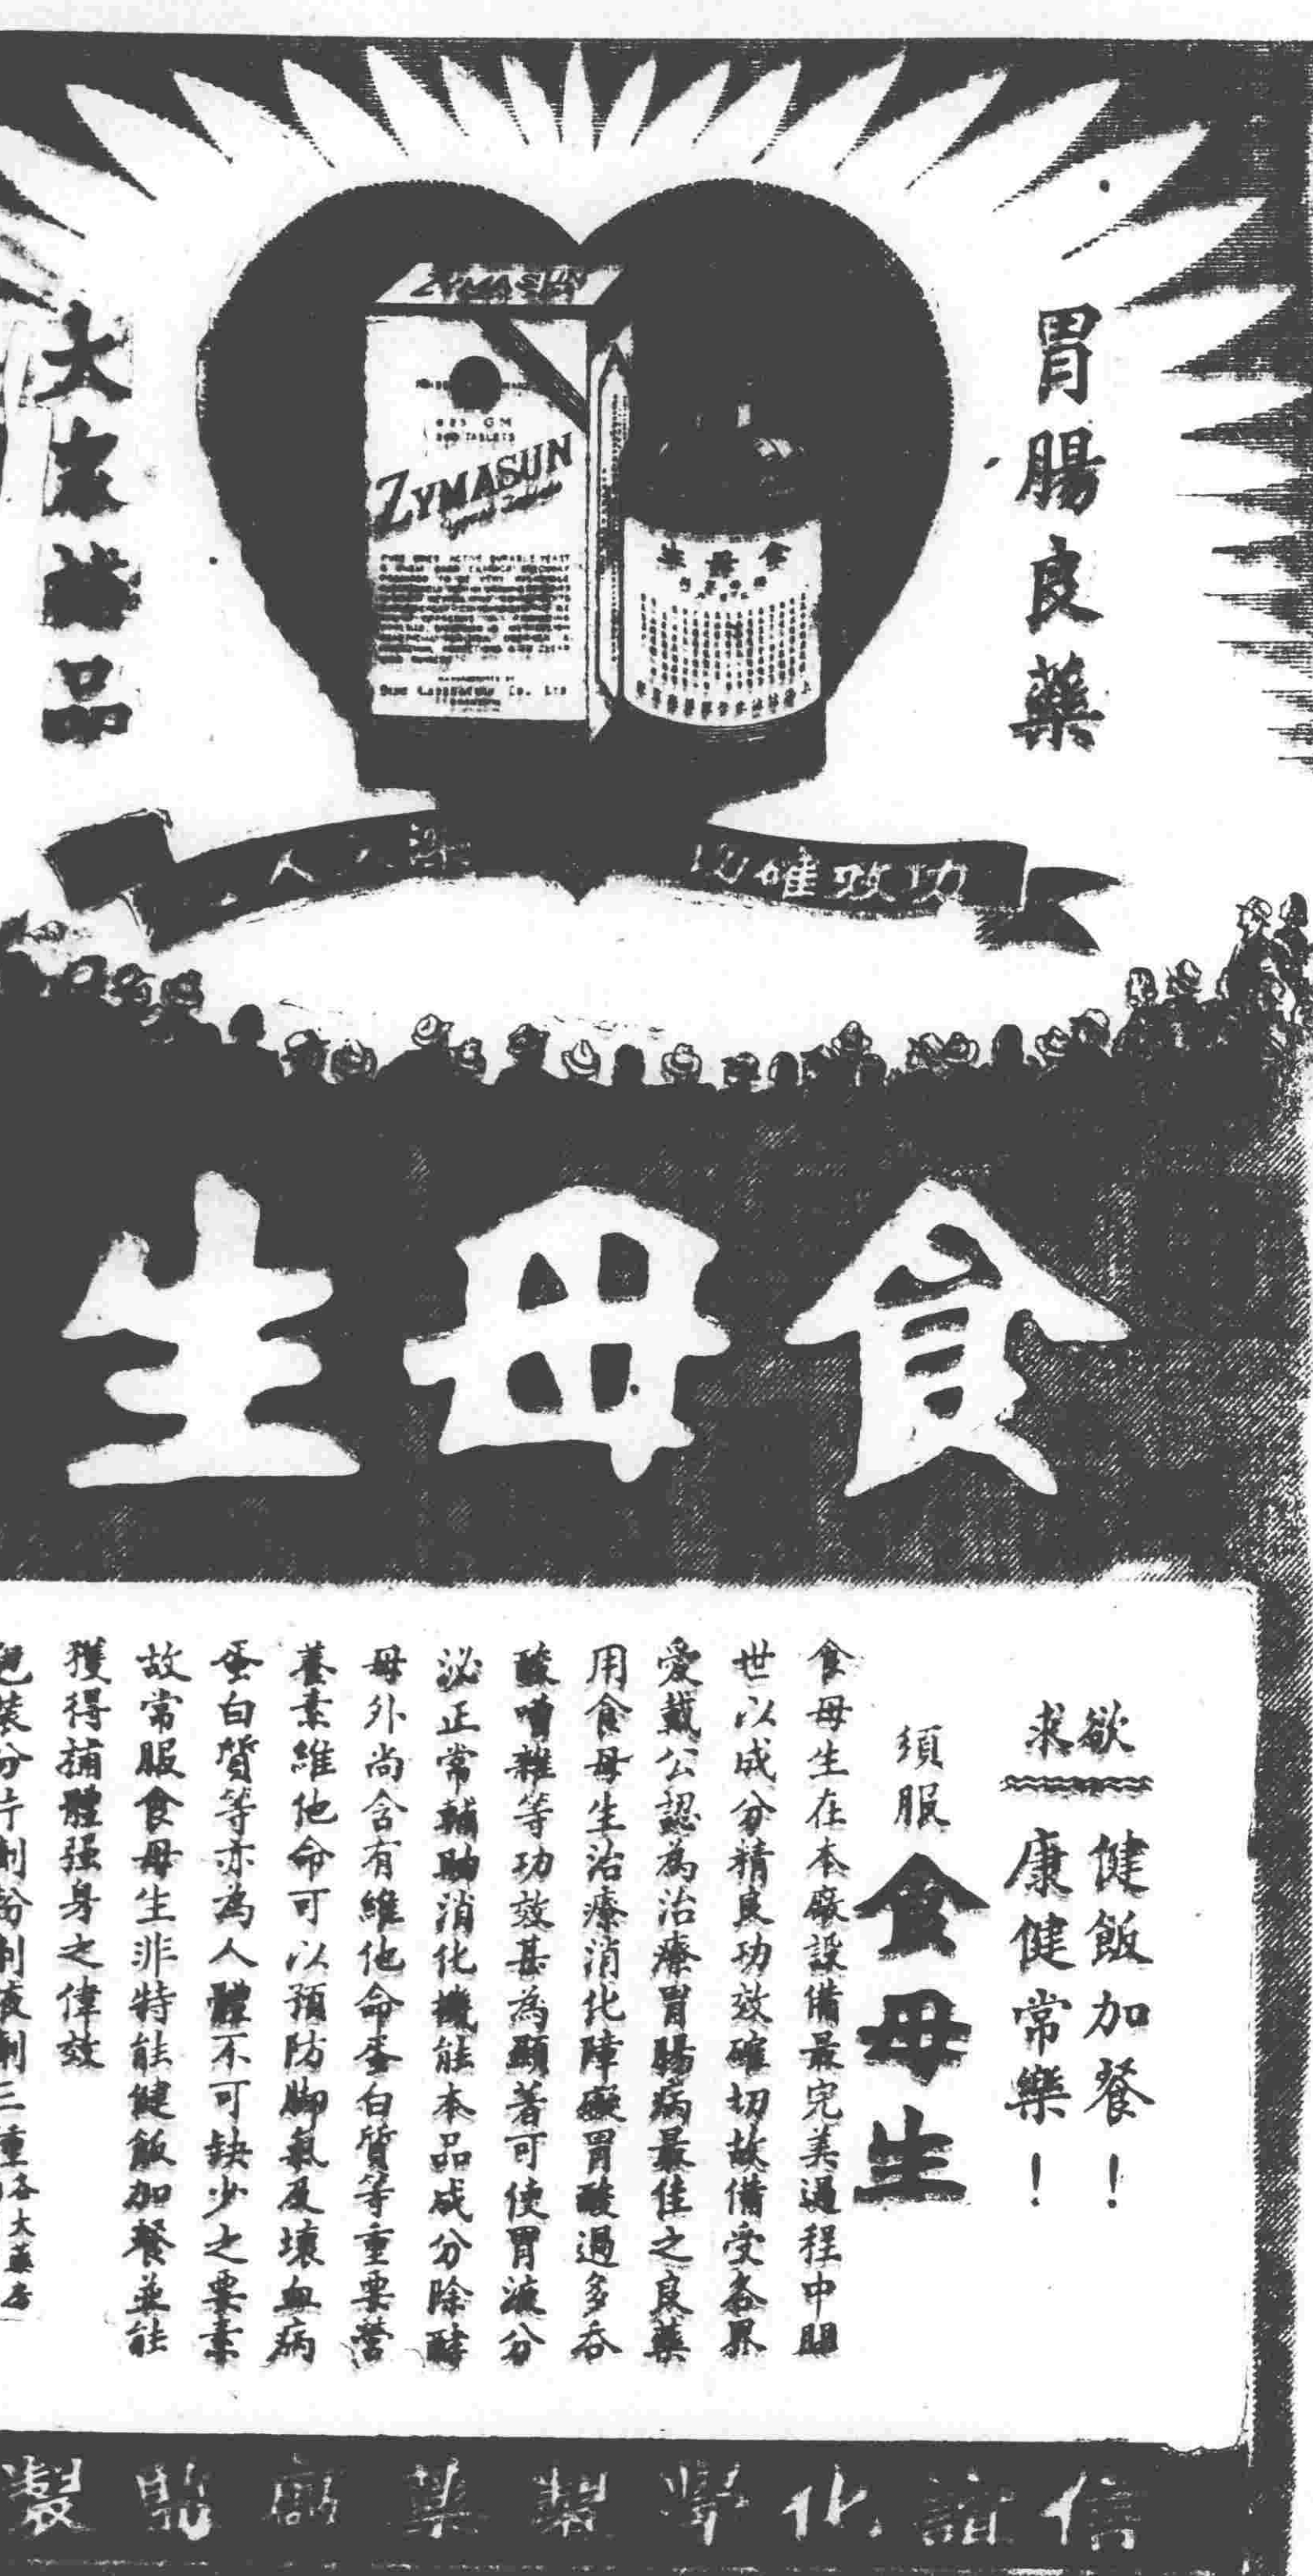 胃腸良藥
大家補品
ZYMASUN
625 GM
ZYMASUN
食母生
功效確切
深入人
食母生
欲 健飯加餐！
求 康健常樂！
須服
食母生
食母生在本廠設備最完美過程中問
世以成分精良功效確切故備受各界
愛戴公認為治療胃腸病最佳之良藥
用食母生治療消化障礙胃酸過多吞
酸嘈雜等功效甚為顯著可使胃液分
泌正常輔助消化機能本品成分除酵
母外尚含有維他命蛋白質等重要營
養素維他命可以預防脚氣及壞血病
蛋白質等亦為人體不可缺少之要素
故常服食母生非特能健飯加餐並能
獲得補體强身之偉效
包裝分片劑粉劑液劑三種各大藥房
信誼化學製藥廠監製